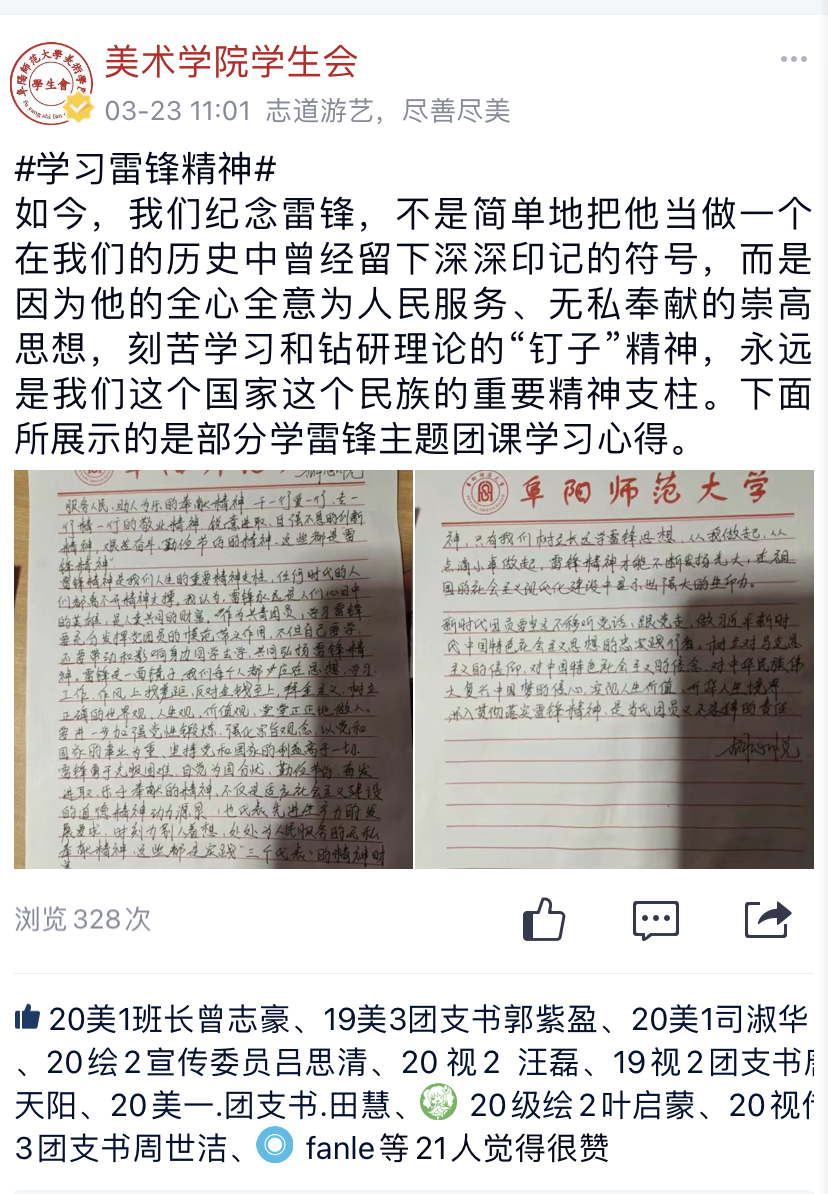 美术学院学生会
03-23 11:01 志道游艺，尽善尽美
#学习雷锋精神#
如今，我们纪念雷锋，不是简单地把他当做一个
在我们的历史中曾经留下深深印记的符号，而是
因为他的全心全意为人民服务、无私奉献的崇高
思想，刻苦学习和钻研理论的“钉子”精神，永远
是我们这个国家这个民族的重要精神支柱。下面
所展示的是部分学雷锋主题团课学习心得。
服务人民，助人为乐的奉献精神，干一行爱一行、专一
行精一行的敬业精神，锐意进取、自强不息的创新
精神，艰苦奋斗、勤俭节约的精神，这些都是雷
锋精神
雷锋精神是我们人生的重要精神支柱，任何时代的人
们都离不开精神支撑。我认为，雷锋永远是人们心目中
的英雄，是人类共同的财富。作为共青团员，学习雷锋
要充分发挥党团员的模范带头作用，不但自己要学，
还要带动和影响身边同学去学，共同弘扬雷锋精
神。雷锋是一面镜子，我们每个人都应在思想、学习、
工作、作风上找差距，反对金钱至上，拜金主义，树立
正确的世界观、人生观、价值观，堂堂正正地做人。
要进一步加强党性锻炼，强化宗旨观念，以党和
国家的事业为重，坚持党和国家的利益高于一切。
雷锋勇于克服困难，自觉为国分忧、勤俭节约、奋发
进取、乐于奉献的精神，不仅是适应社会主义建设
的道德精神动力源泉，也代表先进生产力的发
展要求，时刻为别人着想，处处为人民服务的无私
奉献精神，这些都是实践“三个代表”的精神财
阜阳师范大学
神，只有我们树立长远学雷锋思想，从我做起，从
点滴小事做起，雷锋精神才能不断发扬光大，在祖
国的社会主义现代化建设中显示出强大的生命力。
新时代团员要坚定不移听党话、跟党走，做习近平新时
代中国特色社会主义思想的忠实践行者，树立对马克思
主义的信仰、对中国特色社会主义的信念、对中华民族伟
大复兴中国梦的信心，实现人生价值、升华人生境界
深入贯彻落实雷锋精神，是当代团员义不容辞的责任
浏览328次
20美1班长曾志豪、19美3团支书郭紫盈、20美1司淑华
、20绘2宣传委员吕思清、20 视2 汪磊、19视2团支书
天阳、20美一.团支书.田慧、 20级绘2叶启蒙、20视
3团支书周世洁、 fanle等21人觉得很赞